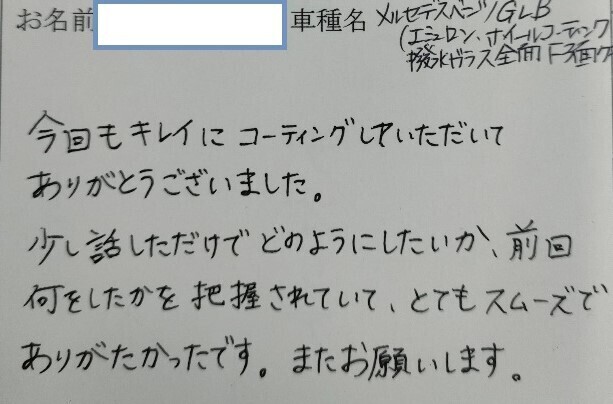 お名前 車種名 メルセデスベンツGLB
(エミュロン、ホイールコーティング
撥水ガラス全面 F3面
今回もキレイにコーティングしていただいて
ありがとうございました。
少し話しただけでどのようにしたいか、前回
何をしたかを把握されていて、とてもスムーズで
ありがたかったです。またお願いします。